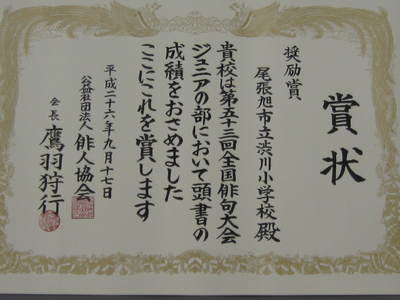 賞状
奨励賞
尾張旭市立渋川小学校殿
貴校は第五十三回全国俳句大会
ジュニアの部において頭書の
成績をおさめました
ここにこれを賞します
平成二十六年九月十七日
公益社団法人 俳人協会
会長 鷹羽狩行